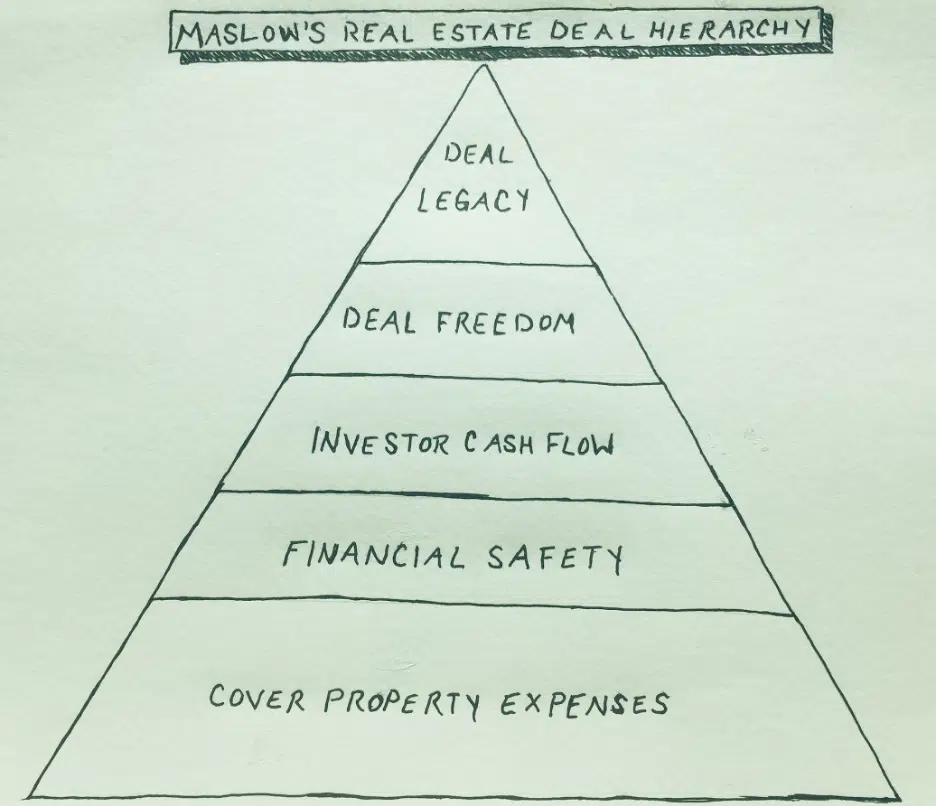 MASLOW'S REAL ESTATE DEAL HIERARCHY
DEAL
LEGACY
DEAL FREEDOM
INVESTOR CASH FLOW
FINANCIAL SAFETY
COVER PROPERTY EXPENSES